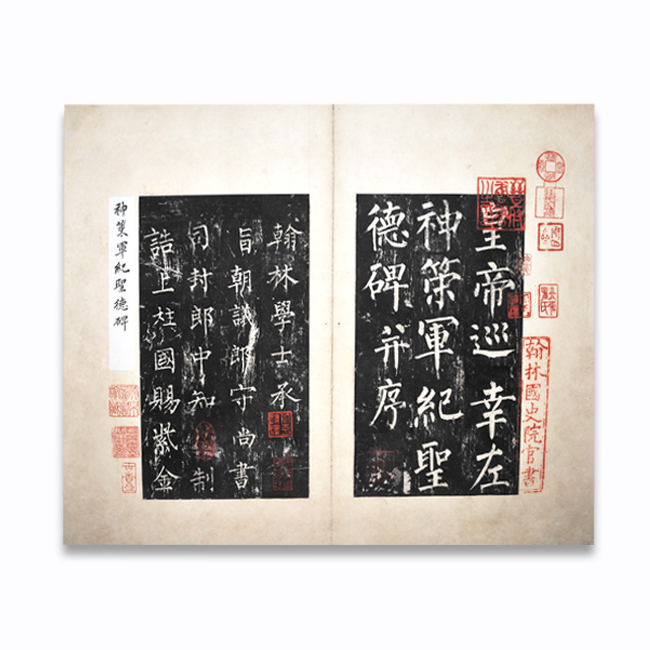 皇帝巡幸左
神策軍紀聖
德碑并序
翰林國史院官書
翰林學士承
旨朝議郎守尚書
司封郎中知制
誥上柱國賜紫金
神策軍紀聖德碑